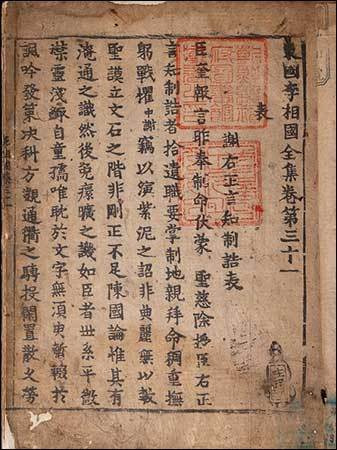 東國李相國全集卷第三十一
表
謝右正言知制誥表
臣奎報言昨奉制命伏蒙 聖慈除授臣右正
言知制誥者拾遺職要掌制地親拜命稠重撫
躬戰懼中謝竊以演紫泥之詔非典麗無以載
聖謨立文石之階非剛正不足陳國論惟其有
淹通之識然後免瘝曠之譏如臣者世系平微
襟靈淺鮮自童孺唯耽於文字無須臾暫輟於
諷吟發策决科方觀通衢之騁投閑置散久勞